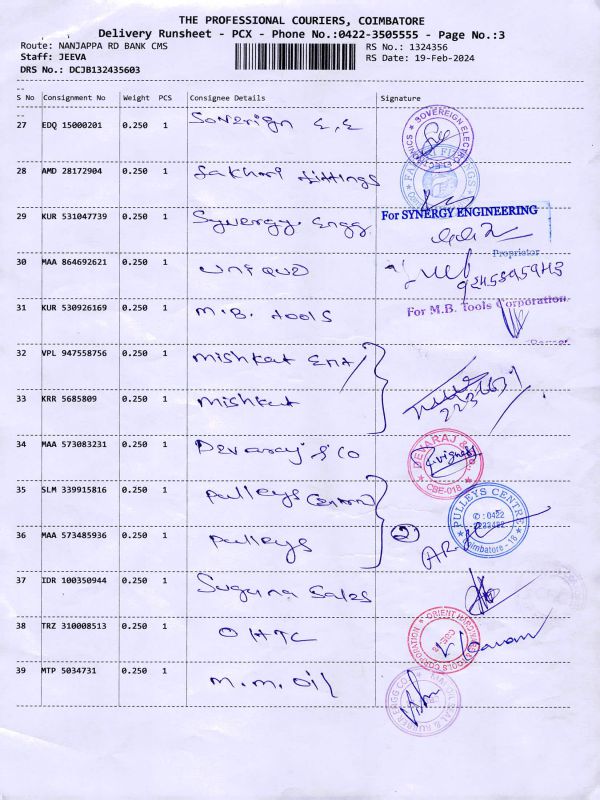 THE PROFESSIONAL COURIERS, COIMBATORE
Delivery Runsheet - PCX - Phone No.:0422-3505555 - Page No.:3
Route: NANJAPPA RD BANK CMS RS No.: 1324356
Staff: JEEVA RS Date: 19-Feb-2024
DRS No.: DCJB132435603
S No Consignment No Weight PCS Consignee Details Signature
27 EDQ 15000201 0.250 1 Soverign E.E
SOVEREIGN ELECTRO ELECTRONICS
28 AMD 28172904 0.250 1 Lakhani fittings
29 KUR 531047739 0.250 1 Synergy Engg.
For SYNERGY ENGINEERING
Proprietor
30 MAA 864692621 0.250 1 Unique
9245895943
31 KUR 530926169 0.250 1 M.B. tools
For M.B. Tools Corporation
32 VPL 947558756 0.250 1 Mishkat Ent/
33 KRR 5685809 0.250 1 Mishkat
34 MAA 573083231 0.250 1 Devaraj & Co
DEVARAJ & CO.
CBE-018
35 SLM 339915816 0.250 1 Pulleys Centre
PULLEYS CENTRE
✆: 0422
Coimbatore - 18
36 MAA 573485936 0.250 1 Pulleys
2
37 IDR 100350944 0.250 1 Suguna Sales
38 TRZ 310008513 0.250 1 OHTC
ORIENT HARDWARE TOOLS CORPORATION
39 MTP 5034731 0.250 1 M.M. Oil